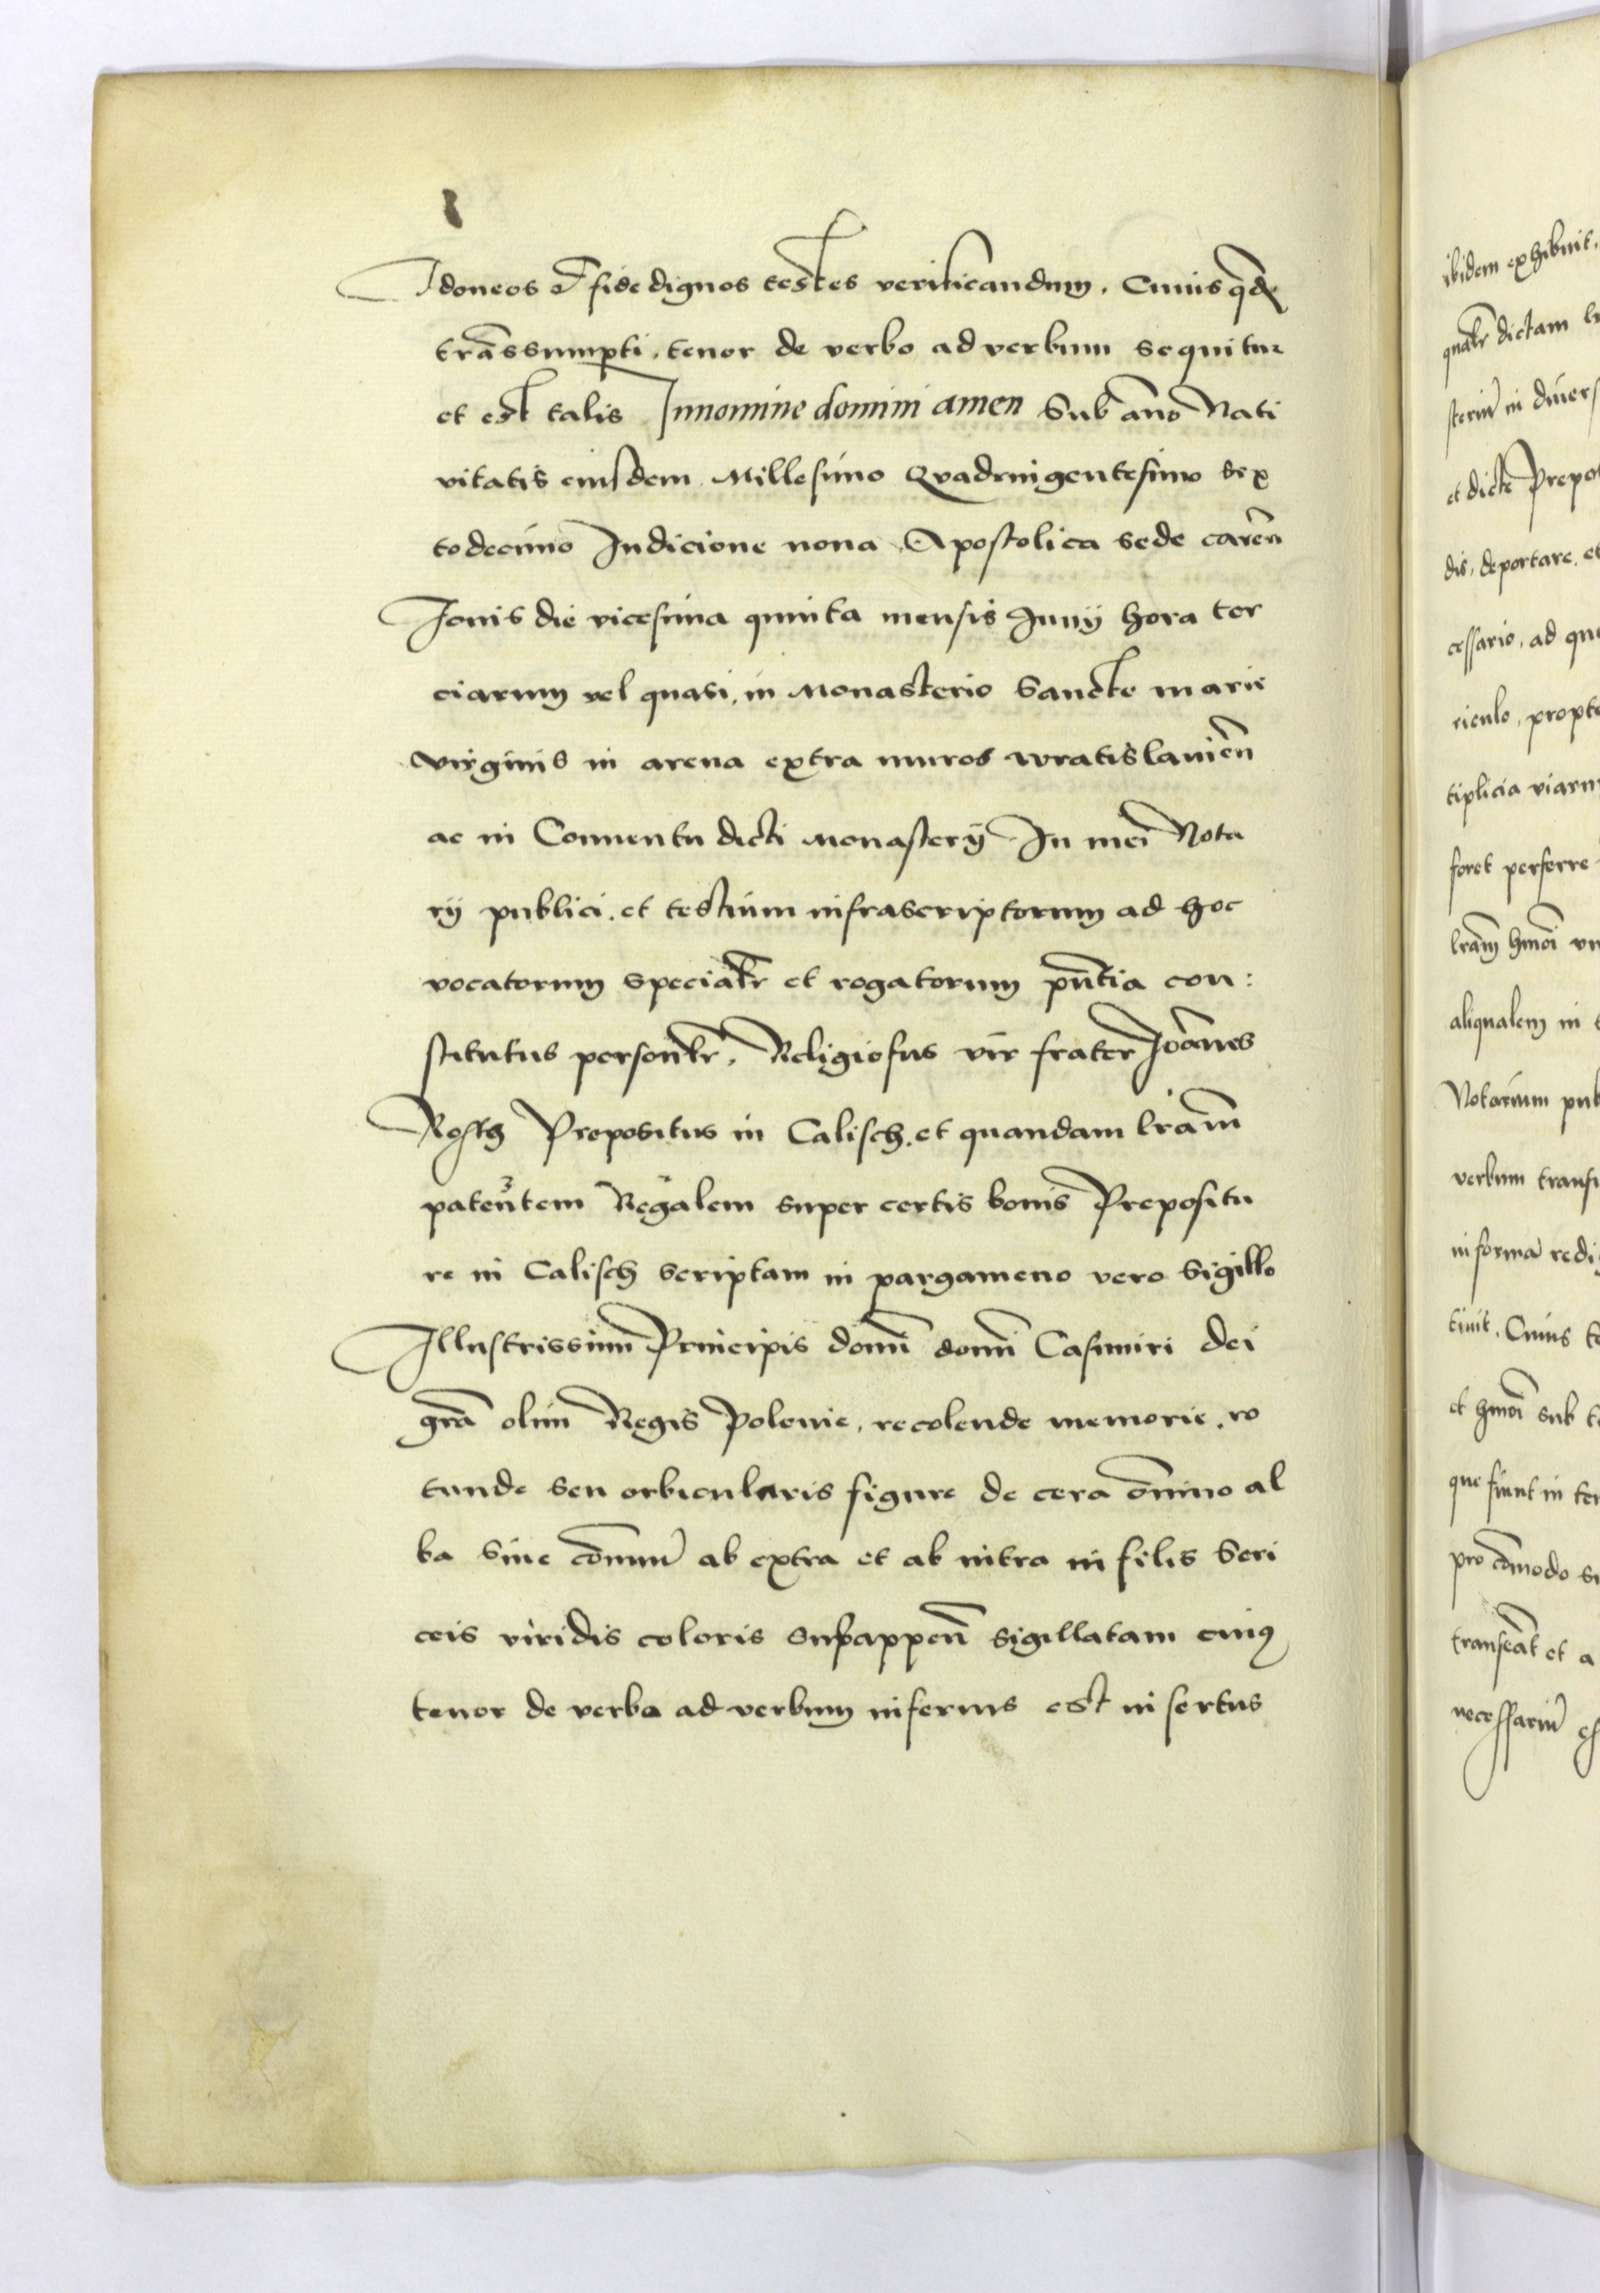 Idoneos et fidedignos testes verificandum. Cuius qdē
trāssumpti, tenor de verbo ad verbum sequitur
et est talis Innomine domini amen Sub āno Nati
vitatis eiusdem Millesimo Quadringentesimo sex
todecimo Indicione nona Apostolica sede carēn
Jouis die vicesima quinta mensis Junij hora ter
ciarum vel quasi, in Monasterio Sancte marie
virginis in arena extra muros wratislauiēn
ac in Conuentu dicti Monasterij In mei Nota
rij publici, et testium infrascriptorum ad hoc
vocatorum specialr et rogatorum pn̄tia con:
stitutus personlr, Religiosus vir frater Joānes
Propositus in Calisch, et quandam lrām
patentem Regalem super certis bonis Prepositu
re in Calisch scriptam in pargameno vero Sigillo
Illustrissimi Principis domī domī Casimiri dei
grā olim Regis Polonie, recolende memorie, ro
tunde seu orbicularis figure de cera ōmino al
ba sine cōmuni ab extra et ab intra in filis Seri
ceis viridis coloris subappen̄ sigillatam cuius
tenor de verba ad verbum inferius est insertus
ibidem exhibuit,
qualr dictam
in diuers
et dicte Prepo
dis, deportare, et
cessario, ad qu
riculo, propt
tiplicia viarum
foret perferre
lrām hmōi
aliqualem in
Notarium pub
verbum transs
in formā redi
tiuit, Cuius
et hmōi sub
que fiunt in
pro cōmodo
transeāt et a
necessariū